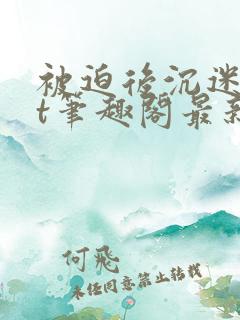 被迫後沉迷
t筆趣閣最新
何飛
未经同意禁止转载